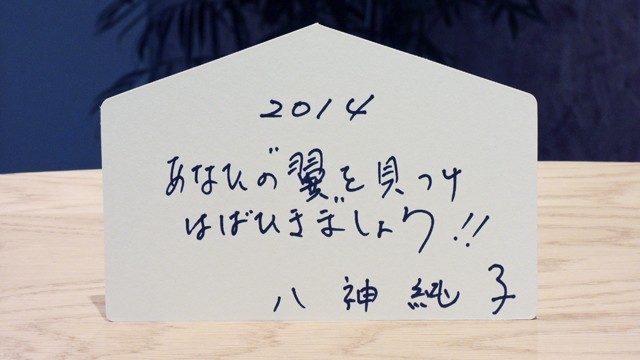 2014
あなたの翼を見つけ
はばたきましょう!!
八神純子